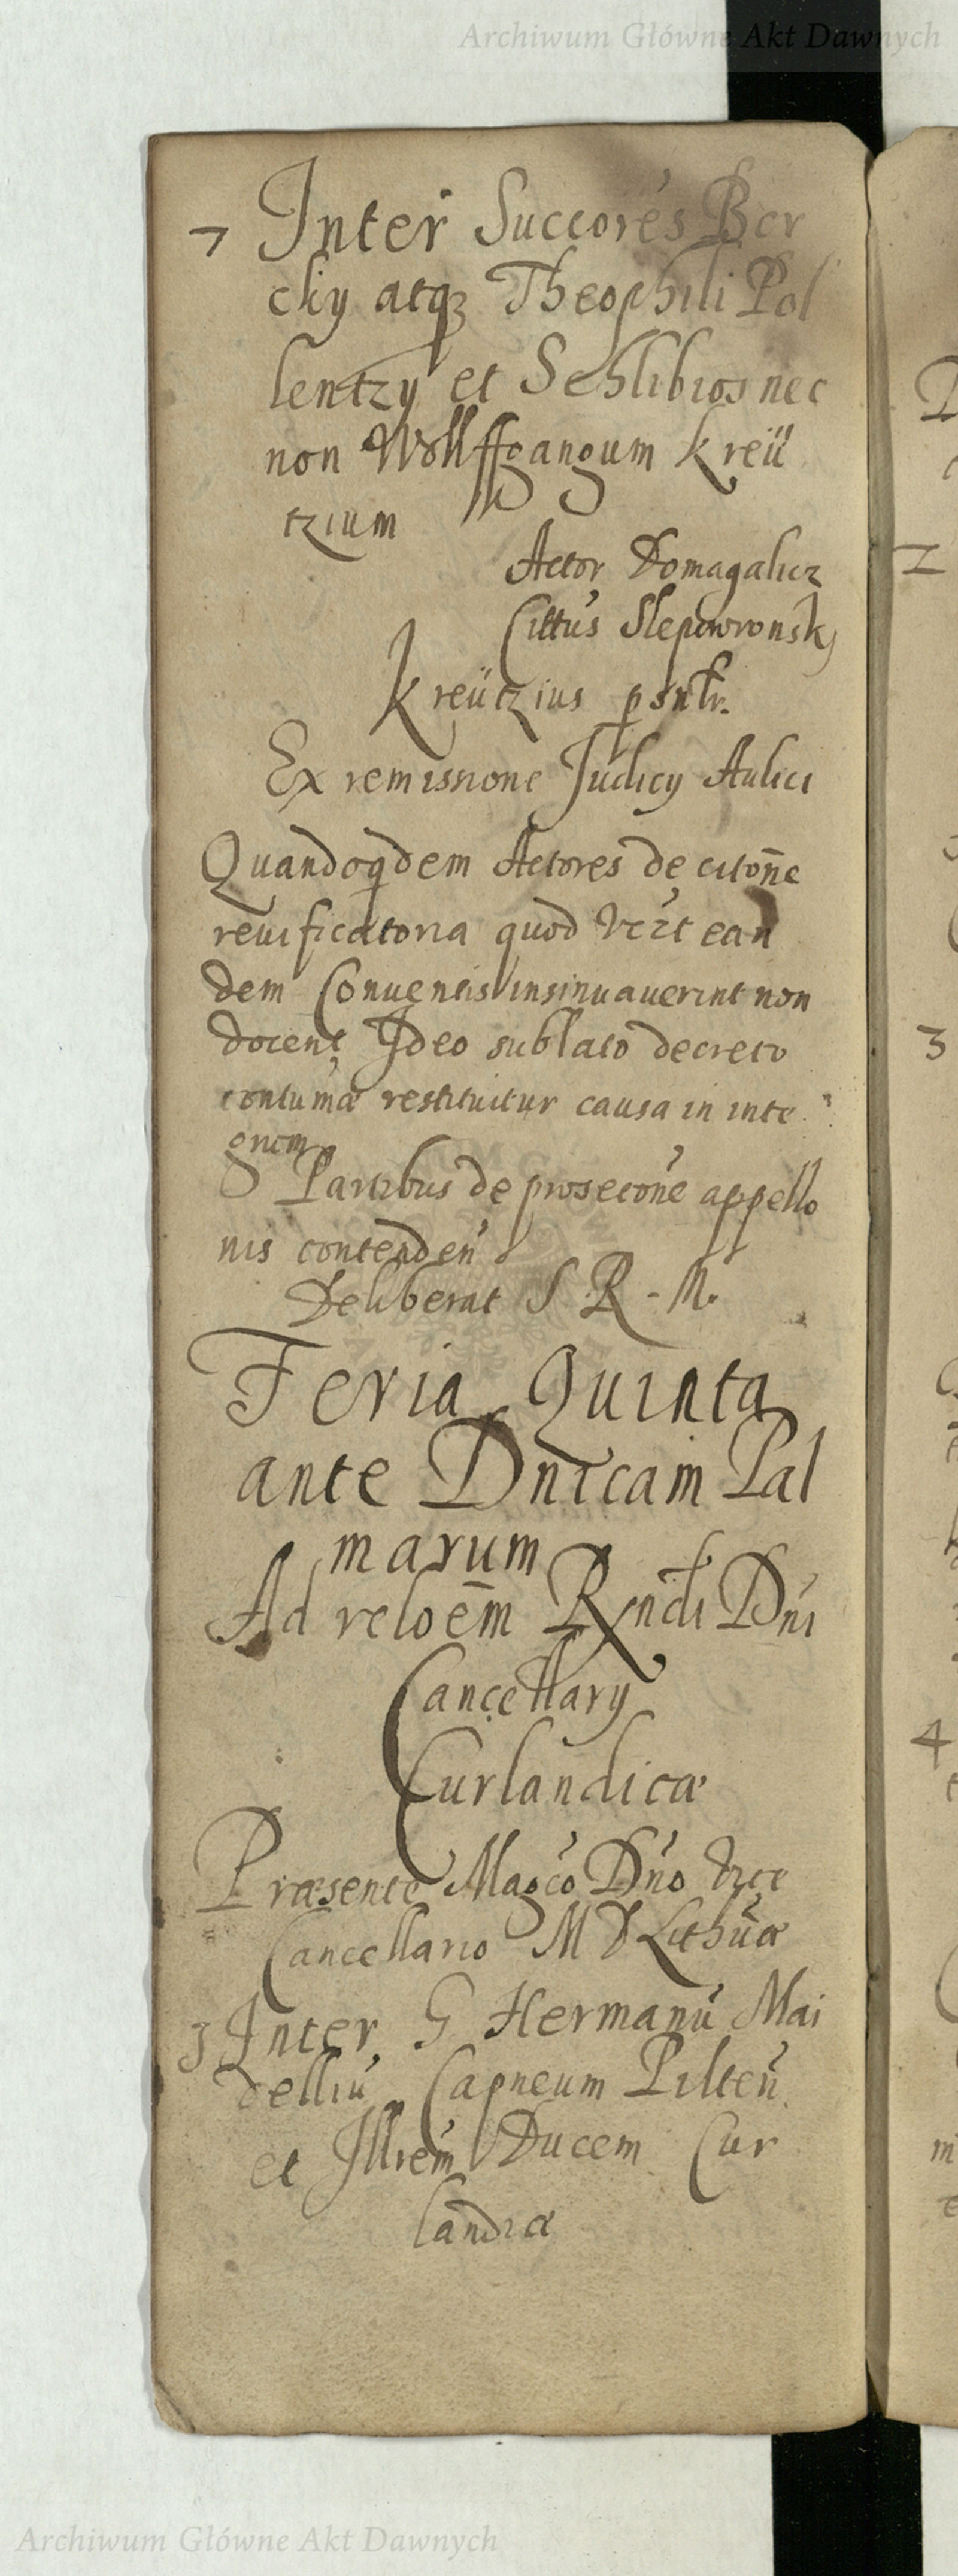 Archiwum Główne Akt Dawnych
7 Inter Succores Ber
chy atq3 Theophili Pol
lentzy et Schlibios nec
non Wolffgangum Kreü
tzium
Actor Domagalicz
Cittus Slepowronsky
Kreützius psntr.
Ex remissione Judicy Aulici
Quandoqdem Actores de citoñe
reuificatoria quod
dem Conuentis insinuauerint non
docent Ideo sublato decreto
contumæ restituitur causa in inte
grum
Partibus de prosecone appello
nis contenden
Deliberat S R - M.
Feria Quinta
ante Dnicam Pal
marum
Ad reloem Rndi Dni
Cancellary
Curlandicæ
Præsente Magco Dno Vice
Cancellario M D Lithuæ
3 Inter G Hermanu Mai
delliu Capneum Pilten
et Illrem Ducem Cur
landiæ
2
3
4
Archiwum Główne Akt Dawnych